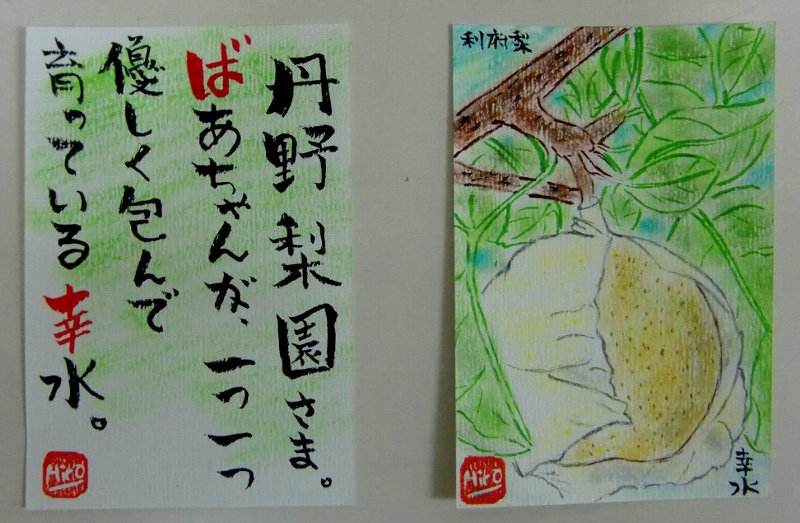 丹野梨園さま。
ばあちゃんが、一つ一つ
優しく包んで
育っている幸水。
Hiro
利府梨
幸水
Hiro